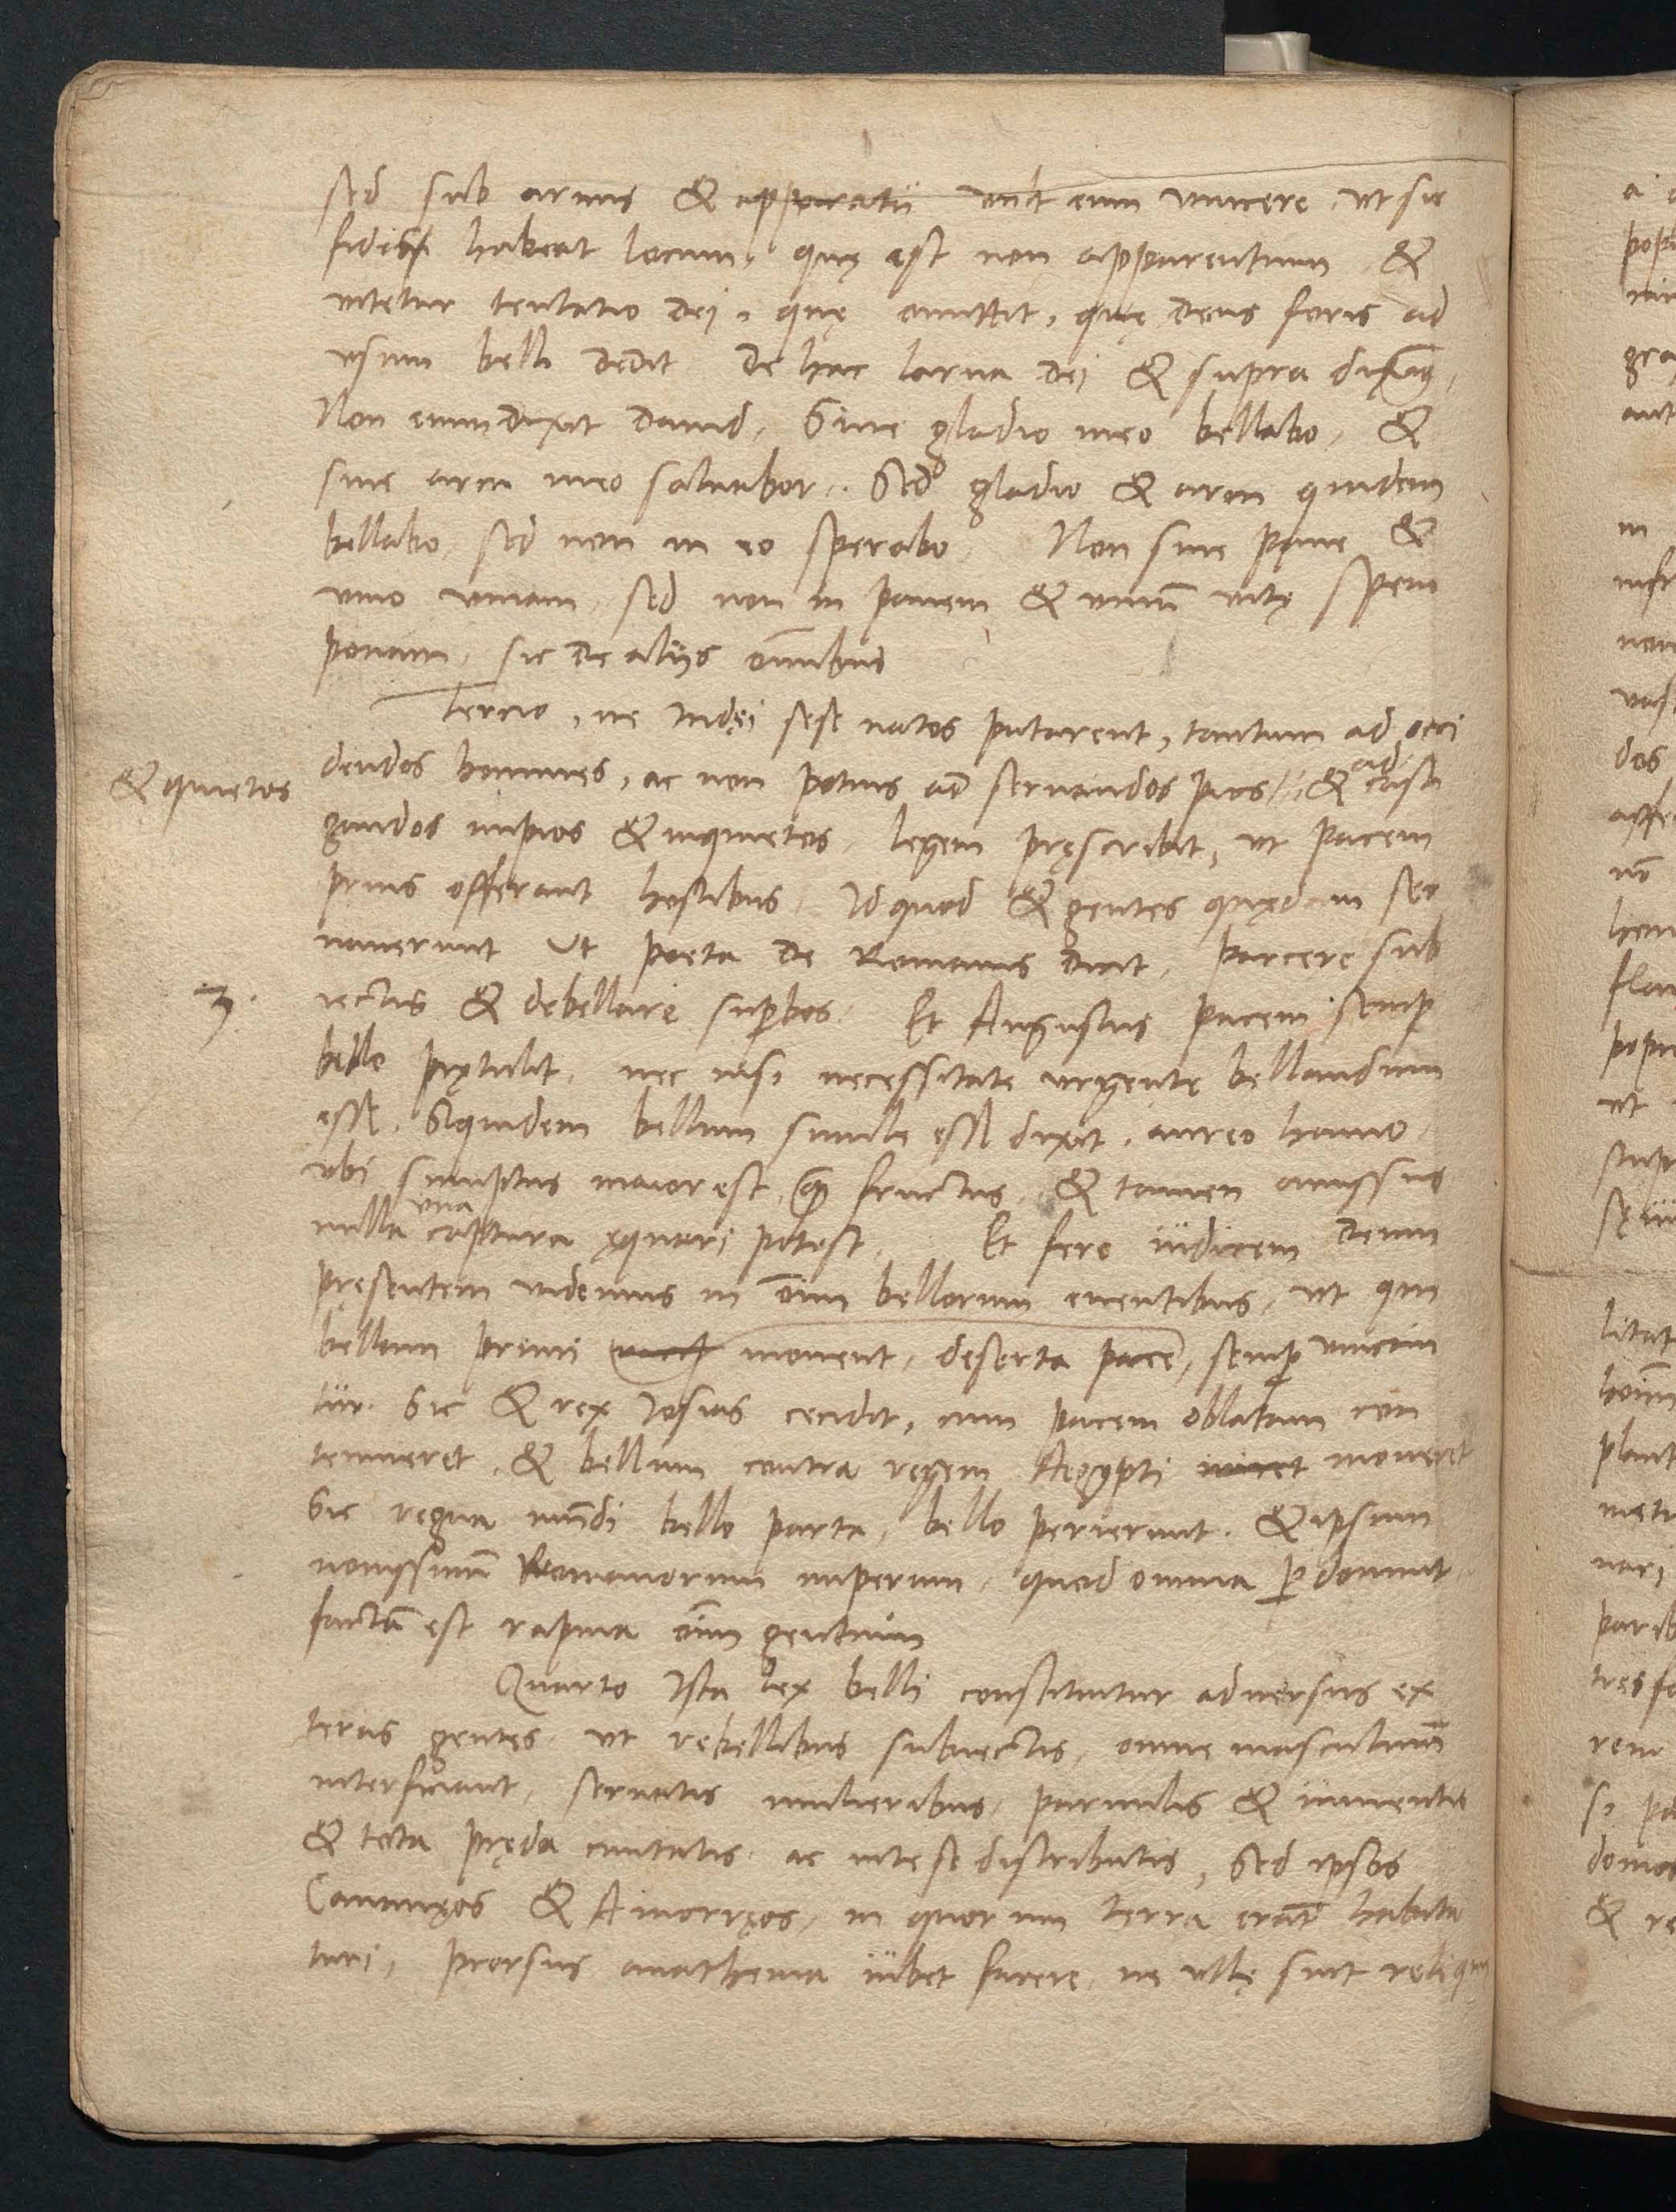 sed sub armis & apparatu vult eum vincere, vt sic
fides habeat locum, quę est non apparentium &
vitetur tentatio Dei, quę omittit, quę Deus foris ad
vsum belli dedit De hac larua Dei & supra diximus,
Non enim dixit Dauid, Sine gladio meo bellabo, &
sine arcu meo saluabor. Sed gladio & arcu quidem
bellabo, sed non in eo sperabo, Non sine pane &
vino viuam, sed non in panem & vinū vitę spem
ponam, sic de alijs oīnibus
Tercio, ne Iudęi sese natos putarent, tantum ad occi
dendos homines, ac non potius ad seruandos pios, & ad casti
& quietos
gandos impios & inquietos, legem pręscribit, vt pacem
prius offerant hostibus, Id quod & gentes quędam ser
uauerunt Vt poeta de Romanis dicit, parcere sub
3.
iectis & debellare supbos. Et Augustus pacem semp
bello pretulit, nec nisi necessitate vrgente bellandum
esse, Siquidem bellum simile esse dixit, aureo hamo,
vbi sumptus maior est, q̄ fructus, & tamen amissus
nulla vna captura ęquari potest. Et fere iudicem Deum
pręsentem videmus in oīm bellorum euentibus, vt qui
bellum primi mouent, deserta pace, semp vincan
tur. Sic & rex Iosias cecidit, cum pacem oblatam con
temneret, & bellum contra regem Aegypti moueret
Sic regna mūdi bello parta, bello perierunt. & ipsum
nouissimū Romanorum imperium, quod omnia pdomuit,
factū est rapina oīm gentium
Quarto Ista lex belli constituitur aduersus ex
teras gentes, vt rebellibus subiectis, omne masculinū
interficiant, seruatis mulieribus, paruulis & iumentis
& tota pręda ciuitatis ac inter se distributis, Sed ipsos
Cananęos & Amorręos, in quorum terra erāt habita
turi, prorsus anathema iubet facere, ne vllę sint reliquię